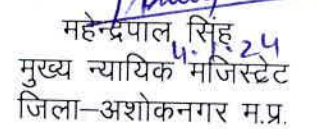 महेन्द्रपाल सिंह
4.1.24
मुख्य न्यायिक मजिस्ट्रेट
जिला–अशोकनगर म.प्र.